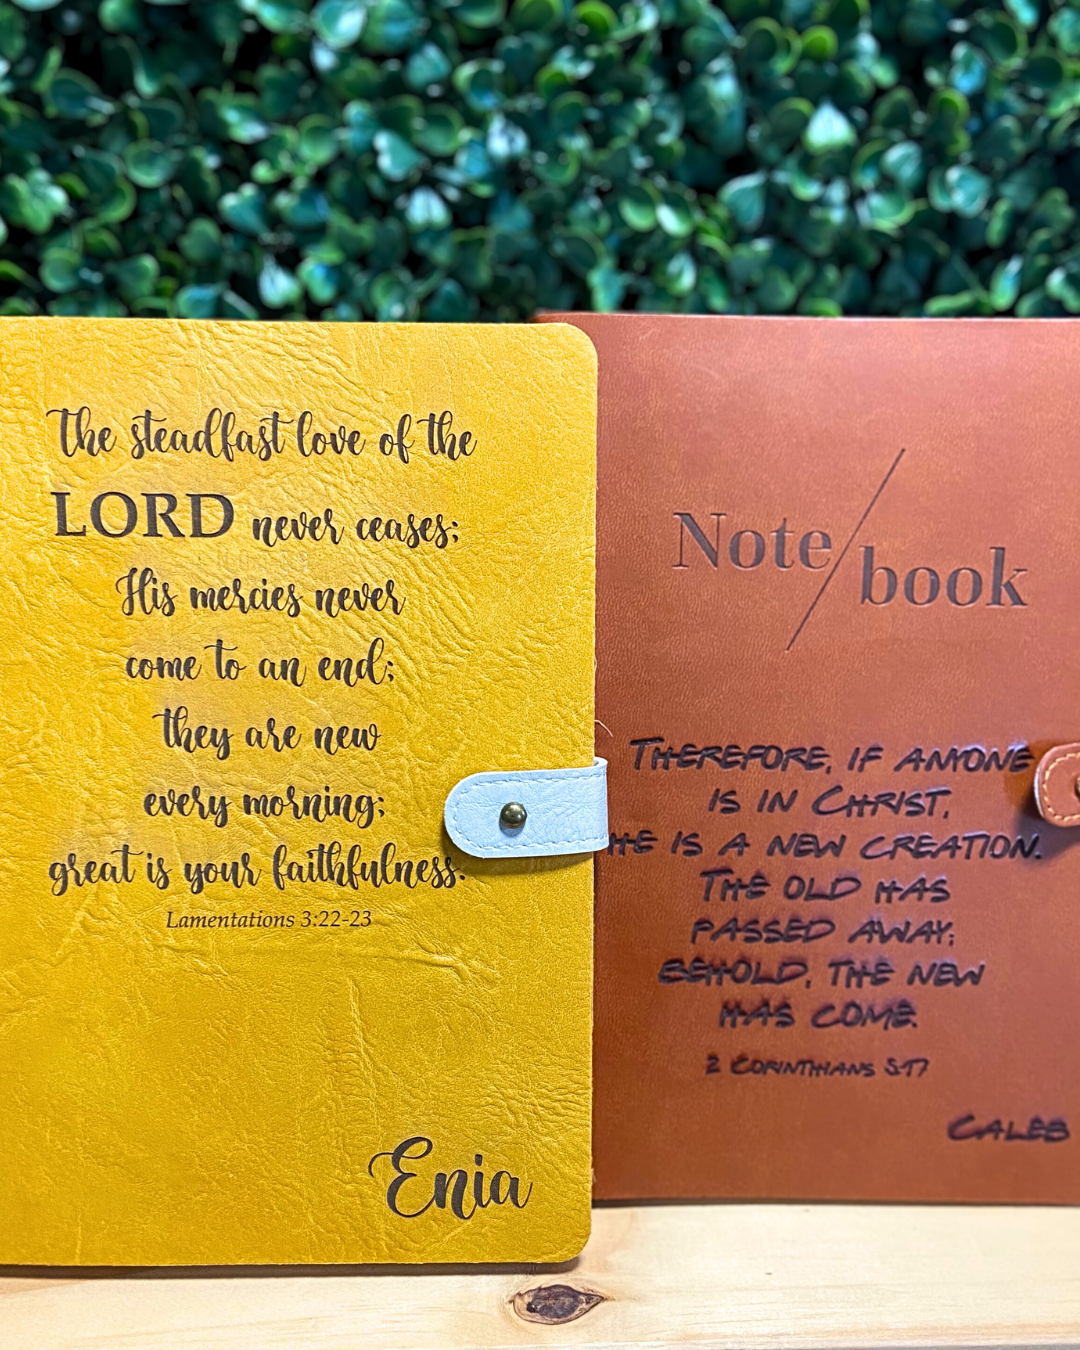 The steadfast love of the
LORD never ceases;
His mercies never
come to an end;
they are new
every morning;
great is your faithfulness.
Lamentations 3:22-23
Enia
Note/book
THEREFORE, IF ANYONE
IS IN CHRIST,
HE IS A NEW CREATION.
THE OLD HAS
PASSED AWAY;
BEHOLD, THE NEW
HAS COME.
2 CORINTHIANS 5:17
CALEB